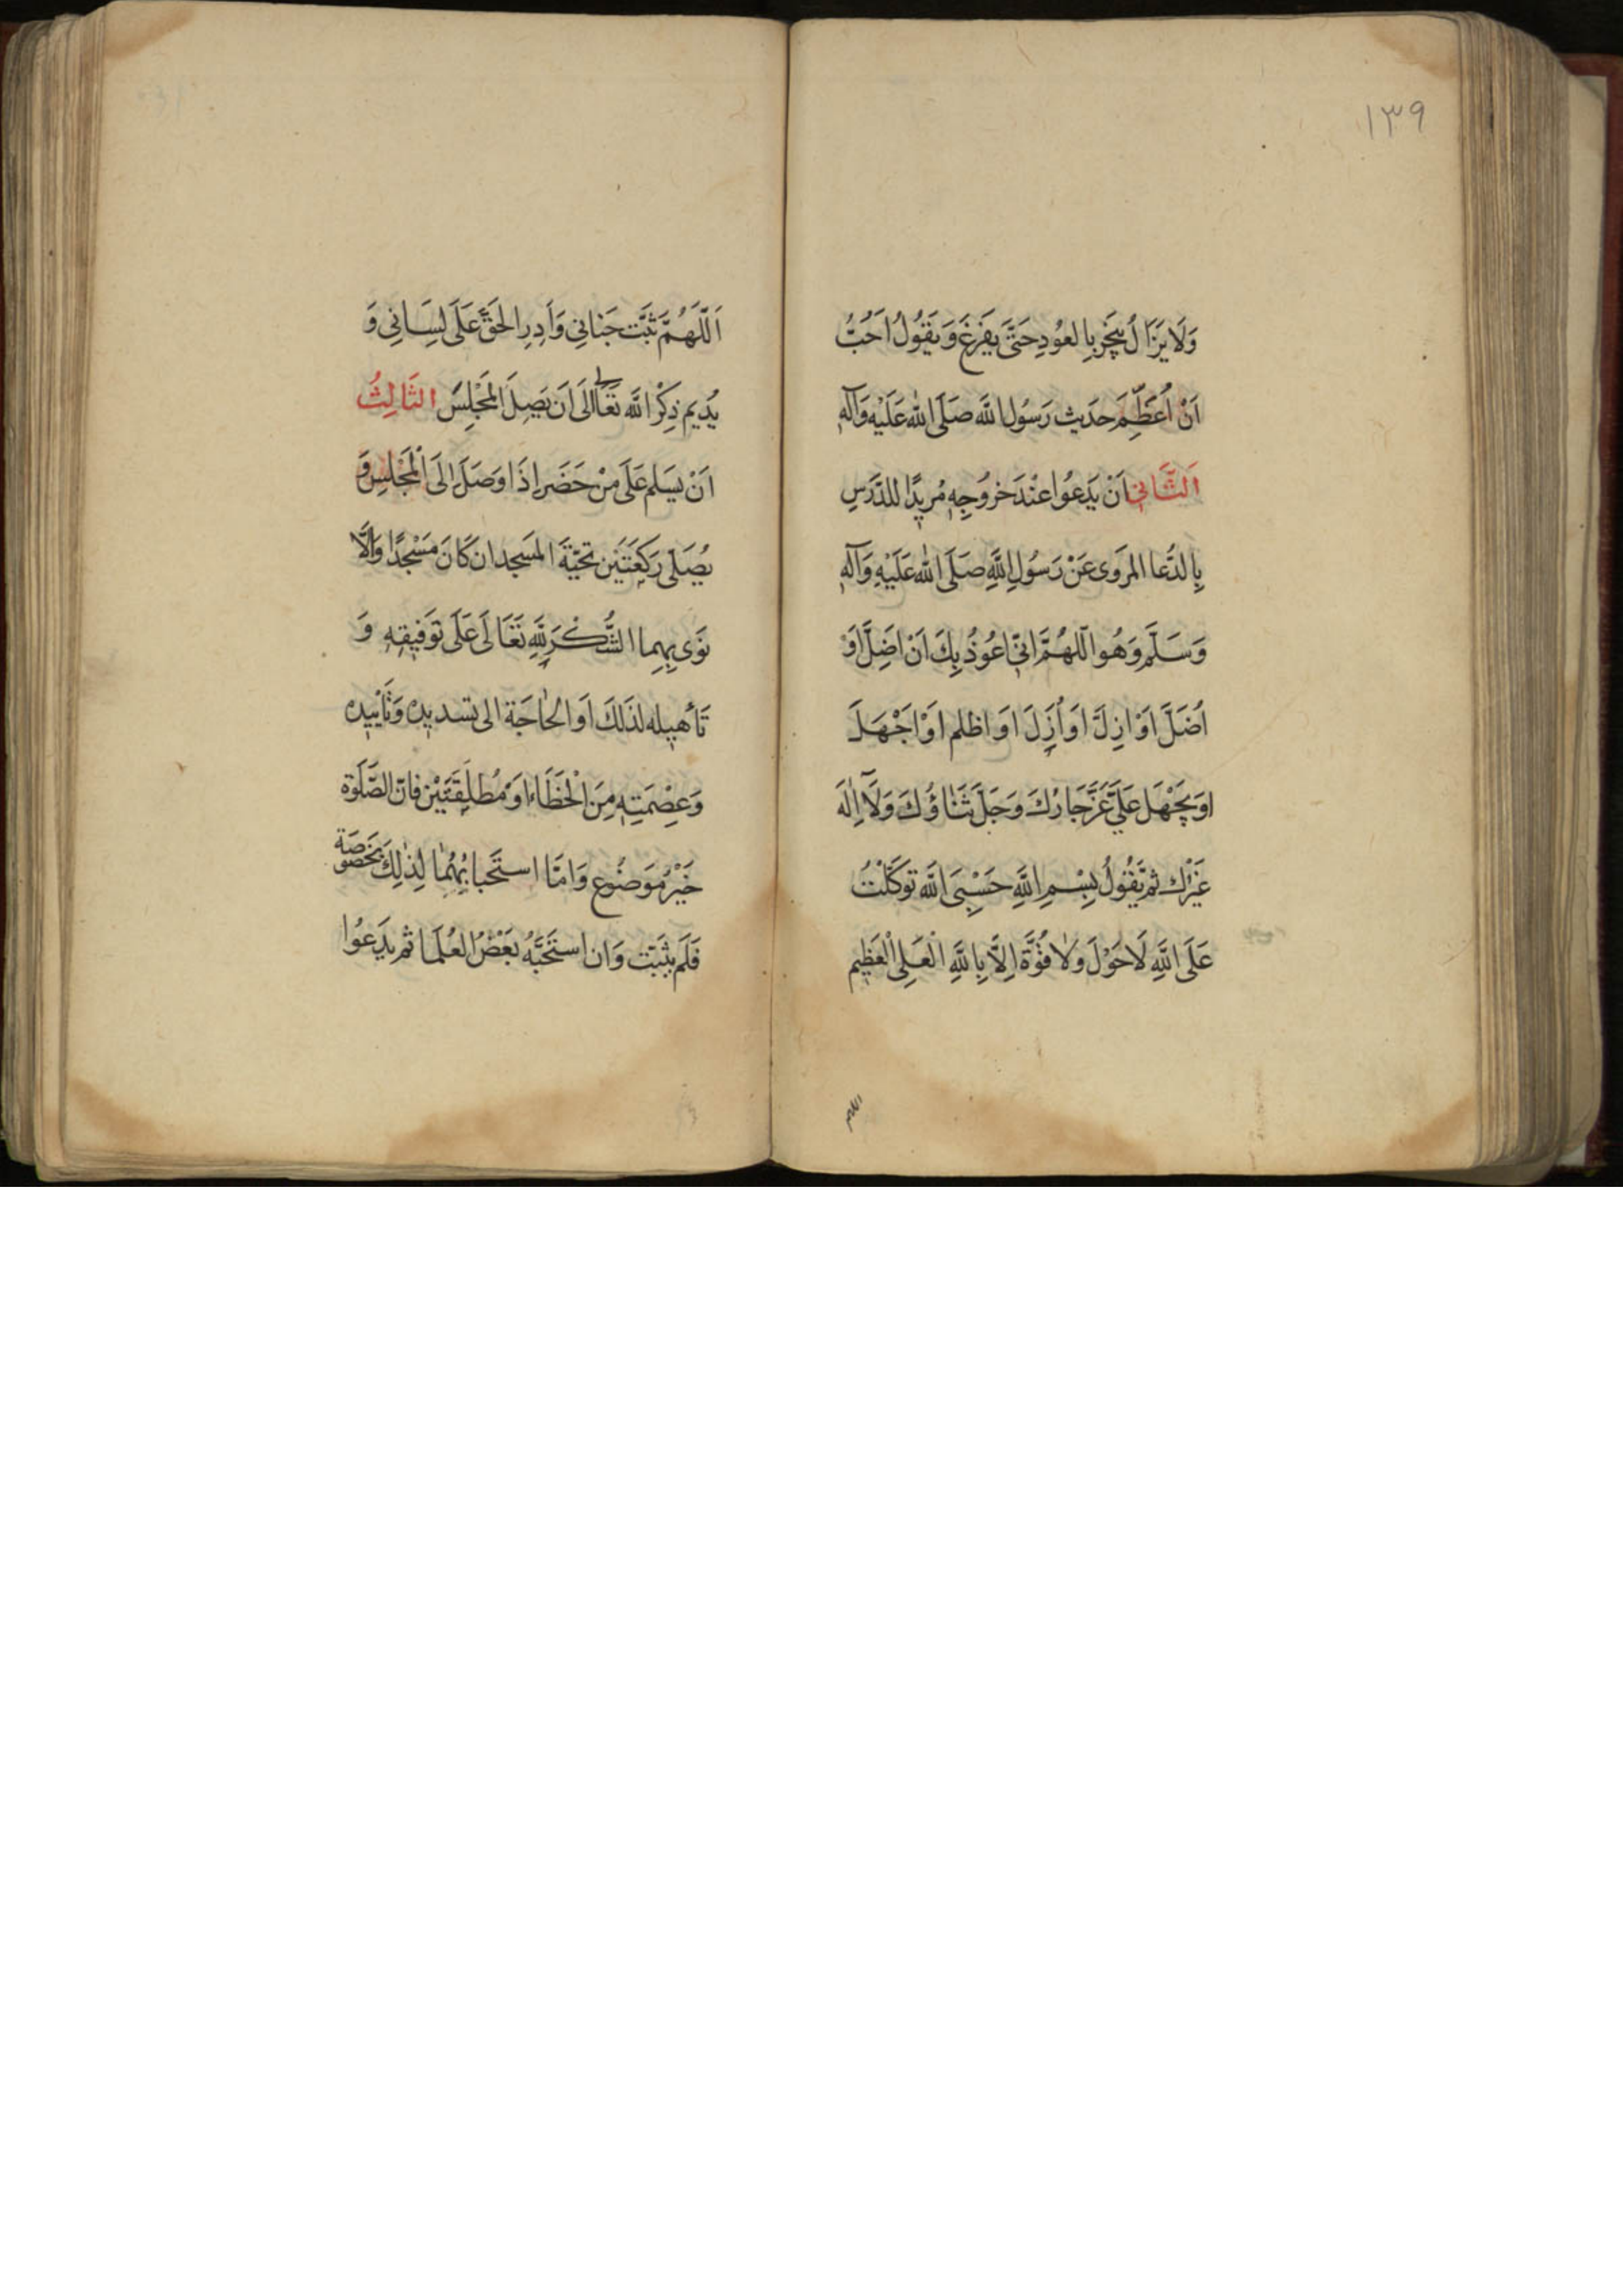 ١٣٩
وَلَا يَزَالُ يَبَخَّر بِالعُودِ حَتَّى يَفرَغَ وَيَقُولُ اُحِبُّ
اَنْ اُعَظِّمَ حَديث رَسُول اللَّه صَلَّى اللَّه عَلَيْهِ وَآلِهِ
اَلثَّانِي اَنْ يَدعُوا عِنْدَ خرُوجِهِ مُريدًا للدَّرسِ
بِالدُّعا المروى عَنْ رَسُولِ اللَّهِ صَلَّى اللَّه عَلَيْهِ وَآلِهِ
وَسَلَّمَ وَهُوا اَللَّهُمَّ اِنّي اَعُوذُ بِكَ اَنْ اَضِلَّ اَوْ
اُضَلَّ اَوْ اَزِلَّ اَوْ اُزَلَّ اَوْ اظلم اَوْ اَجْهَلَ
اَو يُجْهَل عَلَيَّ عَزَّ جَارُكَ وَجَلَّ ثَنَاؤُكَ وَلَا اِلَهَ
غَيْرُك ثمّ يَقُولُ بِسْمِ اللَّهِ حَسْبِىَ اللَّه تَوَكَّلْتُ
عَلَى اللَّهِ لَا حَوْلَ وَلَا قُوَّةَ اِلَّا بِاللَّهِ الْعَلِى الْعَظِيمِ
اللهم
اَللَّهُمَّ ثَبِّت جَنانِي وَاَدِرِ الحَقَّ عَلَى لِسَانِي وَ
يُديم ذِكْرَ اللَّه تَعَالى اِلَى اَن يَصِلَ المَجْلِسَ الثَالِثُ
اَنْ يسَلم عَلَى مَنْ حَضَر اِذَا وَصَلَ اِلَى الْمَجْلِسِ وَ
يُصَلى رَكَعَتَيْن تحيَّةَ المَسجد ان كَانَ مَسْجدًا وَاِلَّا
نَوَى بِهِما الشُّكْرَ لِلَّهِ تَعَالَى عَلَى تَوفِيقِهِ وَ
تَأهيله لذَلكَ اَو الحَاجَة الى تسديده وَتَأييده
وَعِصْمَتِهِ مِنَ الْخَطَاءِ اَوْ مُطلَقَتَيْن فانّ الصَّلَوة
خَيْرُ مَوضُوع وَامَّا استَحبابُهُمَا لِذلِكَ بخصوصَة
فَلَم يثبَت وَان استَحَبَّهُ بَعْضُ العُلَمَا ثم يَدعُوا